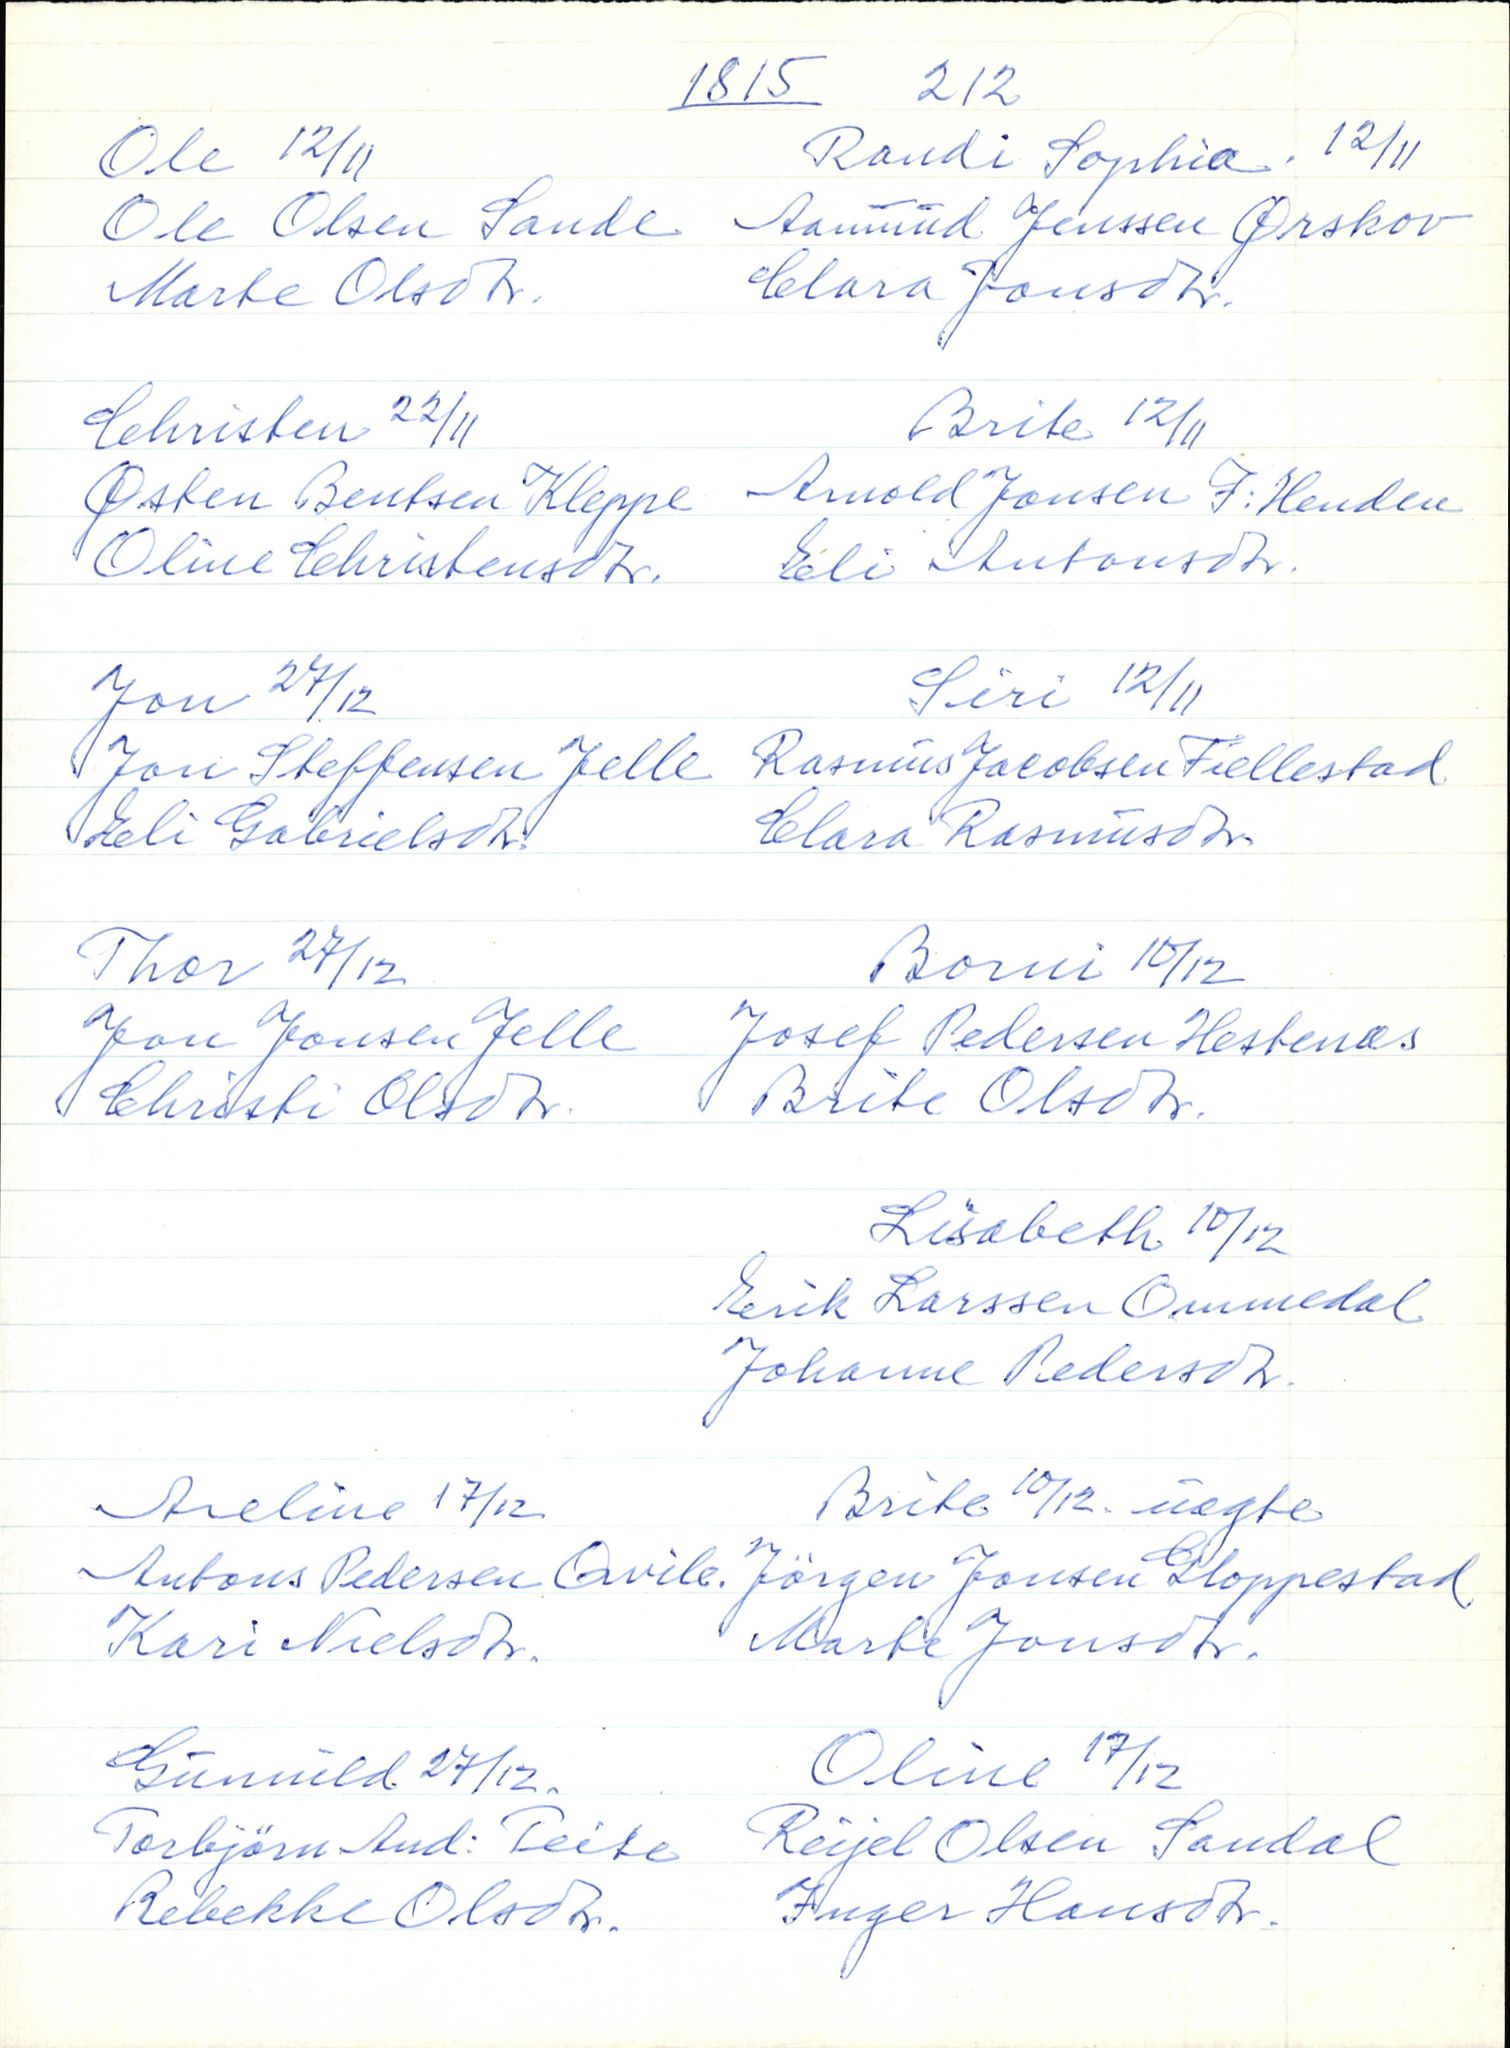 1815 212
Ole 12/11
Ole Olsen Sande
Marte Olsdtr.
Randi Sophia. 12/11
Aamund Jenssen Ørskov
Clara Jonsdtr.
Christen 22/11
Østen Bentsen Kleppe
Oline Christensdtr.
Brite 12/11
Arnold Jonsen F: Henden
Eli Antonsdtr.
Jon 27/12
Jon Steffensen Jelle
Eli Gabrielsdtr.
Siri 12/11
Rasmus Jacobsen Fiellestad
Clara Rasmusdtr.
Thor 27/12
Jon Jonsen Jelle
Christi Olsdtr.
Borni 10/12
Josef Pedersen Hestenæs
Brite Olsdtr.
Lisabeth 10/12
Erik Larssen Ommedal
Johanne Pedersdtr.
Axeline 17/12
Antons Pedersen Qvile.
Kari Nielsdtr.
Brite 10/12. uægte
Jörgen Jonsen Gloppestad
Marte Jonsdtr.
Gunuld 27/12.
Torbjörn And: Teite
Rebekke Olsdtr.
Oline 17/12
Reijel Olsen Sandal
Inger Hansdtr.